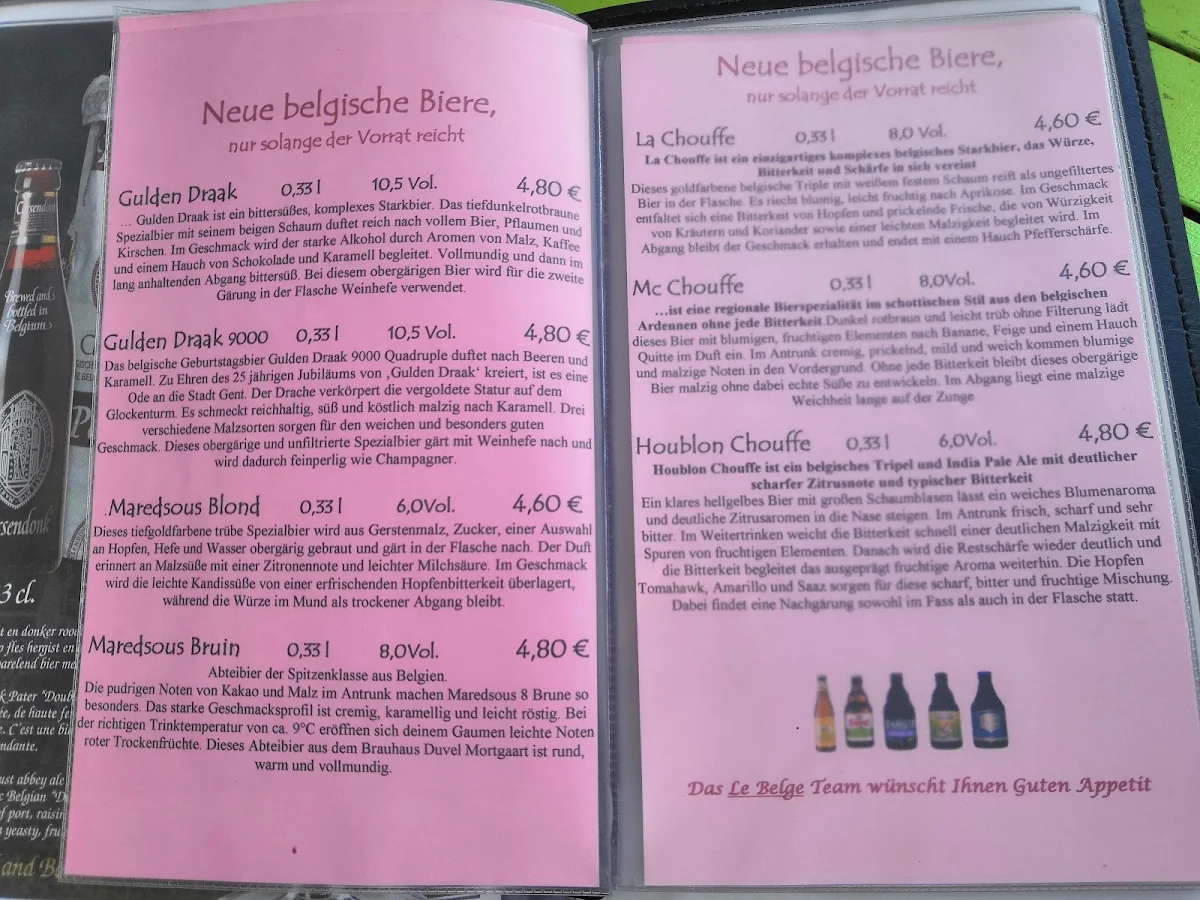 Neue belgische Biere,
nur solange der Vorrat reicht
Gulden Draak 0,33 l 10,5 Vol. 4,80 €
... Gulden Draak ist ein bittersüßes, komplexes Starkbier. Das tiefdunkelrotbraune
Spezialbier mit seinem beigen Schaum duftet reich nach vollem Bier, Pflaumen und
Kirschen. Im Geschmack wird der starke Alkohol durch Aromen von Malz, Kaffee
und einem Hauch von Schokolade und Karamell begleitet. Vollmundig und dann im
lang anhaltenden Abgang bittersüß. Bei diesem obergärigen Bier wird für die zweite
Gärung in der Flasche Weinhefe verwendet.
Gulden Draak 9000 0,33 l 10,5 Vol. 4,80 €
Das belgische Geburtstagsbier Gulden Draak 9000 Quadruple duftet nach Beeren und
Karamell. Zu Ehren des 25 jährigen Jubiläums von ‚Gulden Draak‘ kreiert, ist es eine
Ode an die Stadt Gent. Der Drache verkörpert die vergoldete Statur auf dem
Glockenturm. Es schmeckt reichhaltig, süß und köstlich malzig nach Karamell. Drei
verschiedene Malzsorten sorgen für den weichen und besonders guten
Geschmack. Dieses obergärige und unfiltrierte Spezialbier gärt mit Weinhefe nach und
wird dadurch feinperlig wie Champagner.
Maredsous Blond 0,33 l 6,0Vol. 4,60 €
Dieses tiefgoldfarbene trübe Spezialbier wird aus Gerstenmalz, Zucker, einer Auswahl
an Hopfen, Hefe und Wasser obergärig gebraut und gärt in der Flasche nach. Der Duft
erinnert an Malzsüße mit einer Zitronennote und leichter Milchsäure. Im Geschmack
wird die leichte Kandissüße von einer erfrischenden Hopfenbitterkeit überlagert,
während die Würze im Mund als trockener Abgang bleibt.
Maredsous Bruin 0,33 l 8,0Vol. 4,80 €
Abteibier der Spitzenklasse aus Belgien.
Die pudrigen Noten von Kakao und Malz im Antrunk machen Maredsous 8 Brune so
besonders. Das starke Geschmacksprofil ist cremig, karamellig und leicht röstig. Bei
der richtigen Trinktemperatur von ca. 9°C eröffnen sich deinem Gaumen leichte Noten
roter Trockenfrüchte. Dieses Abteibier aus dem Brauhaus Duvel Mortgaart ist rund,
warm und vollmundig.
Neue belgische Biere,
nur solange der Vorrat reicht
La Chouffe 0,33 l 8,0 Vol. 4,60 €
La Chouffe ist ein einzigartiges komplexes belgisches Starkbier, das Würze,
Bitterkeit und Schärfe in sich vereint
Dieses goldfarbene belgische Triple mit weißem festem Schaum reift als ungefiltertes
Bier in der Flasche. Es riecht blumig, leicht fruchtig nach Aprikose. Im Geschmack
entfaltet sich eine Bitterkeit von Hopfen und prickelnde Frische, die von Würzigkeit
von Kräutern und Koriander sowie einer leichten Malzigkeit begleitet wird. Im
Abgang bleibt der Geschmack erhalten und endet mit einem Hauch Pfefferschärfe.
Mc Chouffe 0,33 l 8,0Vol. 4,60 €
...ist eine regionale Bierspezialität im schottischen Stil aus den belgischen
Ardennen ohne jede Bitterkeit Dunkel rotbraun und leicht trüb ohne Filterung lädt
dieses Bier mit blumigen, fruchtigen Elementen nach Banane, Feige und einem Hauch
Quitte im Duft ein. Im Antrunk cremig, prickelnd, mild und weich kommen blumige
und malzige Noten in den Vordergrund. Ohne jede Bitterkeit bleibt dieses obergärige
Bier malzig ohne dabei echte Süße zu entwickeln. Im Abgang liegt eine malzige
Weichheit lange auf der Zunge
Houblon Chouffe 0,33 l 6,0Vol. 4,80 €
Houblon Chouffe ist ein belgisches Tripel und India Pale Ale mit deutlicher
scharfer Zitrusnote und typischer Bitterkeit
Ein klares hellgelbes Bier mit großen Schaumblasen lässt ein weiches Blumenaroma
und deutliche Zitrusaromen in die Nase steigen. Im Antrunk frisch, scharf und sehr
bitter. Im Weitertrinken weicht die Bitterkeit schnell einer deutlichen Malzigkeit mit
Spuren von fruchtigen Elementen. Danach wird die Restschärfe wieder deutlich und
die Bitterkeit begleitet das ausgeprägt fruchtige Aroma weiterhin. Die Hopfen
Tomahawk, Amarillo und Saaz sorgen für diese scharf, bitter und fruchtige Mischung.
Dabei findet eine Nachgärung sowohl im Fass als auch in der Flasche statt.
Das Le Belge Team wünscht Ihnen Guten Appetit
Brewed and
bottled in
Belgium
sendonk
3 cl.
t en donker rood
fles hergist en
arelend bier me
k Pater "Doub
ée, de haute fe
. C'est une biè
ndante.
ust abbey ale
c Belgian "D
f port, raisin
yeasty, fru
and B